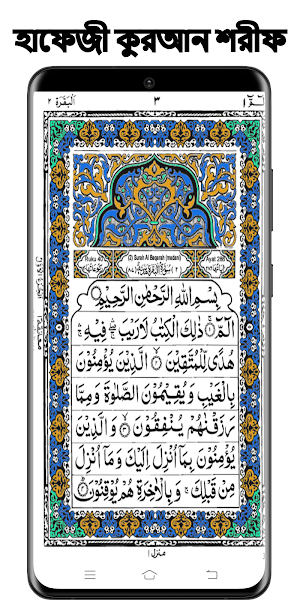 হাফেজী কুরআন শরীফ
اَلْبَقَرَة ٢ ٣ الٓمّٓ ١
Ruku 40 (2) Surah Al Baqarah (madani) Ayat 286
بِسْمِ اللّٰهِ الرَّحْمٰنِ الرَّحِيْمِ
الٓمّٓ ۚ ذٰلِكَ الْكِتٰبُ لَا رَيْبَ ۛ فِيْهِ ۛ
هُدًى لِّلْمُتَّقِيْنَ ۙ الَّذِيْنَ يُؤْمِنُوْنَ
بِالْغَيْبِ وَيُقِيْمُوْنَ الصَّلٰوةَ وَمِمَّا
رَزَقْنٰهُمْ يُنْفِقُوْنَ ۙ وَالَّذِيْنَ
يُؤْمِنُوْنَ بِمَآ اُنْزِلَ اِلَيْكَ وَمَآ اُنْزِلَ
مِنْ قَبْلِكَ ۚ وَبِالْاٰخِرَةِ هُمْ يُوْقِنُوْنَ ۗ
منزل ١